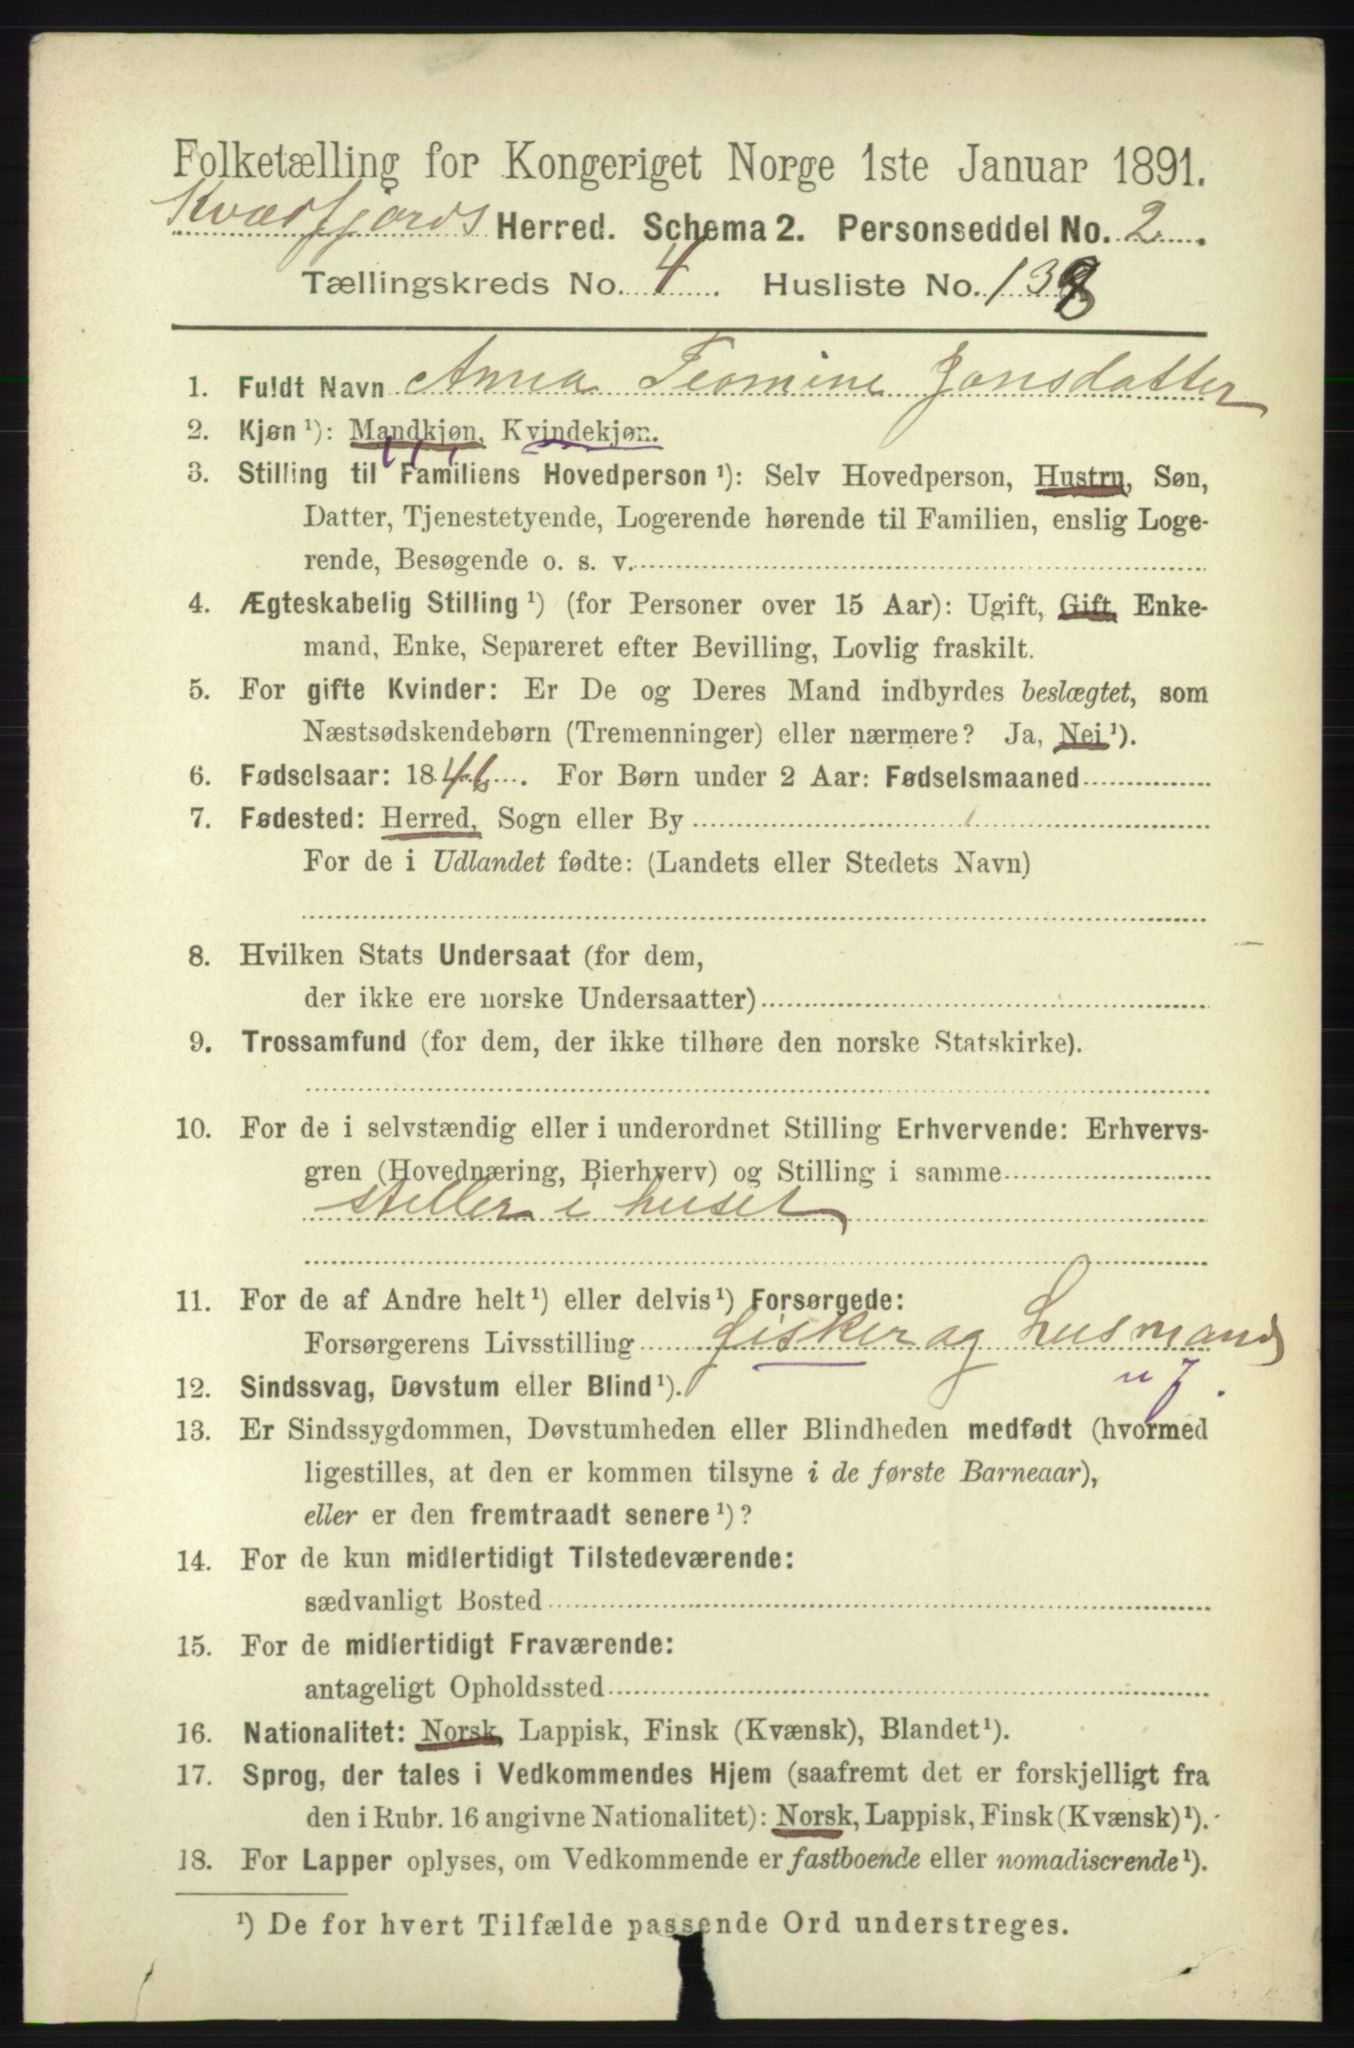 Folketælling for Kongeriget Norge 1ste Januar 1891.
Kvædfjords Herred. Schema 2. Personseddel No. 2.
Tællingskreds No. 4. Husliste No. 138
1. Fuldt Navn Anna Jonsdatter
2. Kjøn ¹): Mandkjøn, Kvindekjøn.
3. Stilling til Familiens Hovedperson ¹): Selv Hovedperson, Hustru, Søn,
Datter, Tjenestetyende, Logerende hørende til Familien, enslig Loge-
rende, Besøgende o. s. v.
4. Ægteskabelig Stilling ¹) (for Personer over 15 Aar): Ugift, Gift, Enke-
mand, Enke, Separeret efter Bevilling, Lovlig fraskilt.
5. For gifte Kvinder: Er De og Deres Mand indbyrdes beslægtet, som
Næstsødskendebørn (Tremenninger) eller nærmere? Ja, Nei ¹).
6. Fødselsaar: 1846. For Børn under 2 Aar: Fødselsmaaned
7. Fødested: Herred, Sogn eller By
For de i Udlandet fødte: (Landets eller Stedets Navn)
8. Hvilken Stats Undersaat (for dem,
der ikke ere norske Undersaatter)
9. Trossamfund (for dem, der ikke tilhøre den norske Statskirke).
10. For de i selvstændig eller i underordnet Stilling Erhvervende: Erhvervs-
gren (Hovednæring, Bierhverv) og Stilling i samme
steller i huset
11. For de af Andre helt ¹) eller delvis ¹) Forsørgede:
Forsørgerens Livsstilling fisker og husmand
u j.
12. Sindssvag, Døvstum eller Blind ¹).
13. Er Sindssygdommen, Døvstumheden eller Blindheden medfødt (hvormed
ligestilles, at den er kommen tilsyne i de første Barneaar),
eller er den fremtraadt senere ¹)?
14. For de kun midlertidigt Tilstedeværende:
sædvanligt Bosted
15. For de midlertidigt Fraværende:
antageligt Opholdssted
16. Nationalitet: Norsk, Lappisk, Finsk (Kvænsk), Blandet ¹).
17. Sprog, der tales i Vedkommendes Hjem (saafremt det er forskjelligt fra
den i Rubr. 16 angivne Nationalitet): Norsk, Lappisk, Finsk (Kvænsk) ¹).
18. For Lapper oplyses, om Vedkommende er fastboende eller nomadiserende ¹).
¹) De for hvert Tilfælde passende Ord understreges.